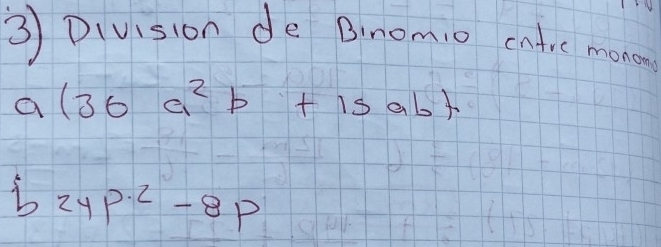 3) Division de Binomio entre monomio
a (36 a² b + 15 ab)
b 24p.² - 8p